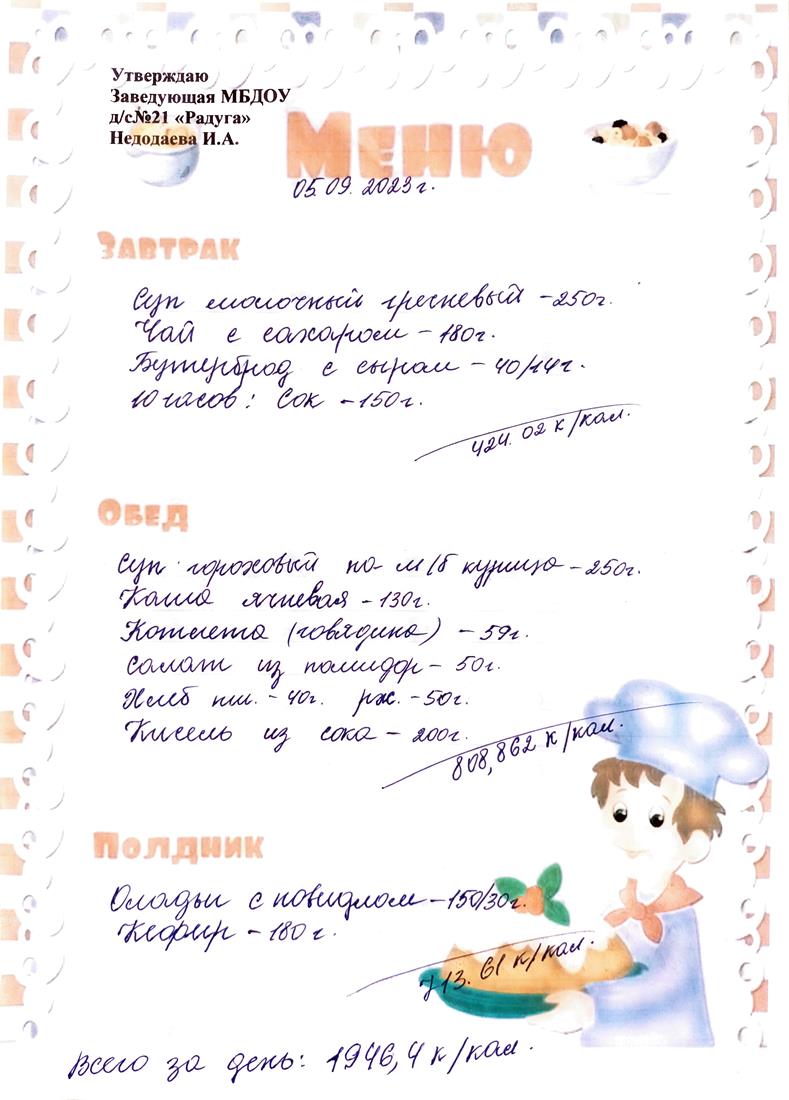 Утверждаю
Заведующая МБДОУ
д/с№21 «Радуга»
Недодаева И.А.
Меню
05.09.2023г.
Завтрак
Суп молочный гречневый – 250г.
Чай с сахаром – 180г.
Бутерброд с сыром – 40/14г.
10 часов: Сок – 150г.
424.02 к/кал.
Обед
Суп гороховый на м/б курица – 250г.
Каша ячневая – 130г.
Котлета (говядина) – 59г.
Салат из помидор – 50г.
Хлеб пш. – 40г. рж. – 50г.
Кисель из сока – 200г.
808,862 к/кал.
Полдник
Оладьи с повидлом – 150/30г.
Кефир – 180г.
713.61 к/кал.
Всего за день: 1946,4 к/кал.